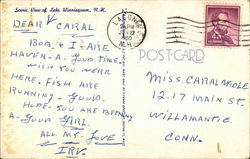 Scenic View of Lake Winnisquam, N.H.
DEAR CARAL
BOB & I ARE
HAVEN - A - GOOD TIME
WISH YOU WERE
HERE. FISH ARE
RUNNING - GOOD.
HOPE YOU ARE BEING
A - GOOD GIRL.
ALL MY - LOVE
IRV.
LACONIA
PM
1960
N.H.
POST CARD
MISS. CARAL
12-17 MAIN ST.
WILLAMANTIC
CONN.